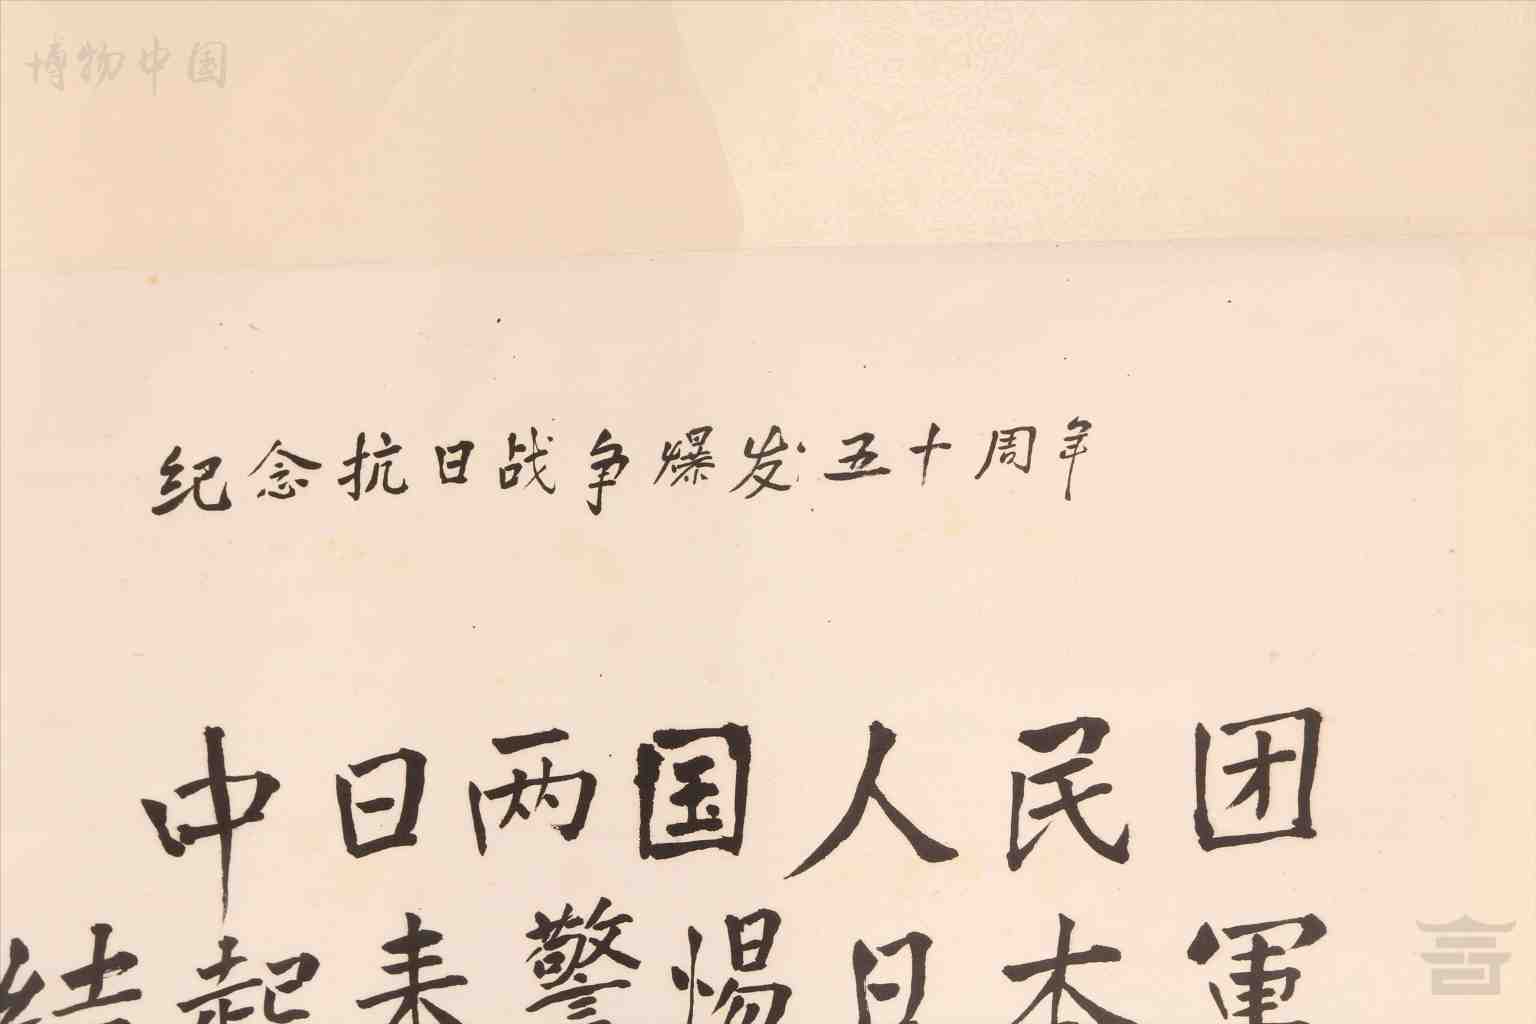 博物中国
纪念抗日战争爆发五十周年
中日两国人民团
结起来警惕日本軍